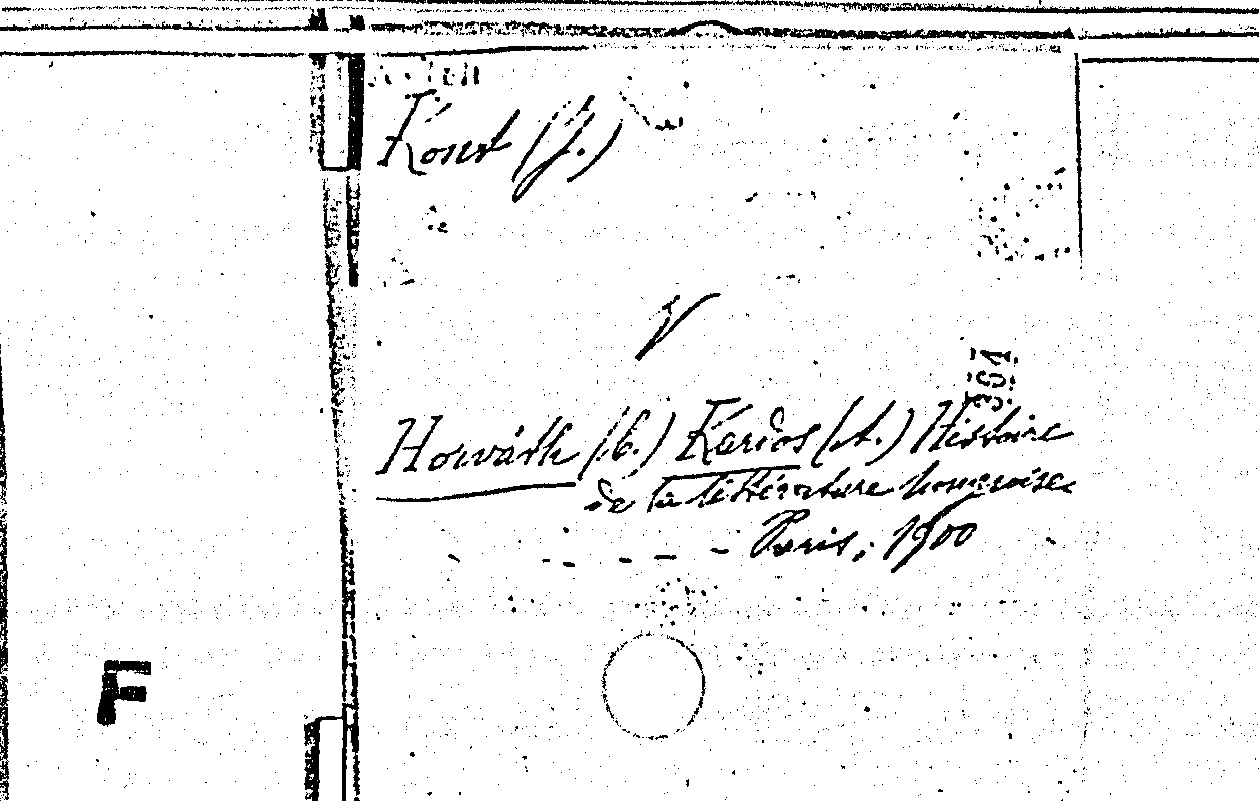 Kont (J.)
361
Horváth (C.) Kardos (A.) Histoire
de la littérature hongroise.
Paris, 1900
F